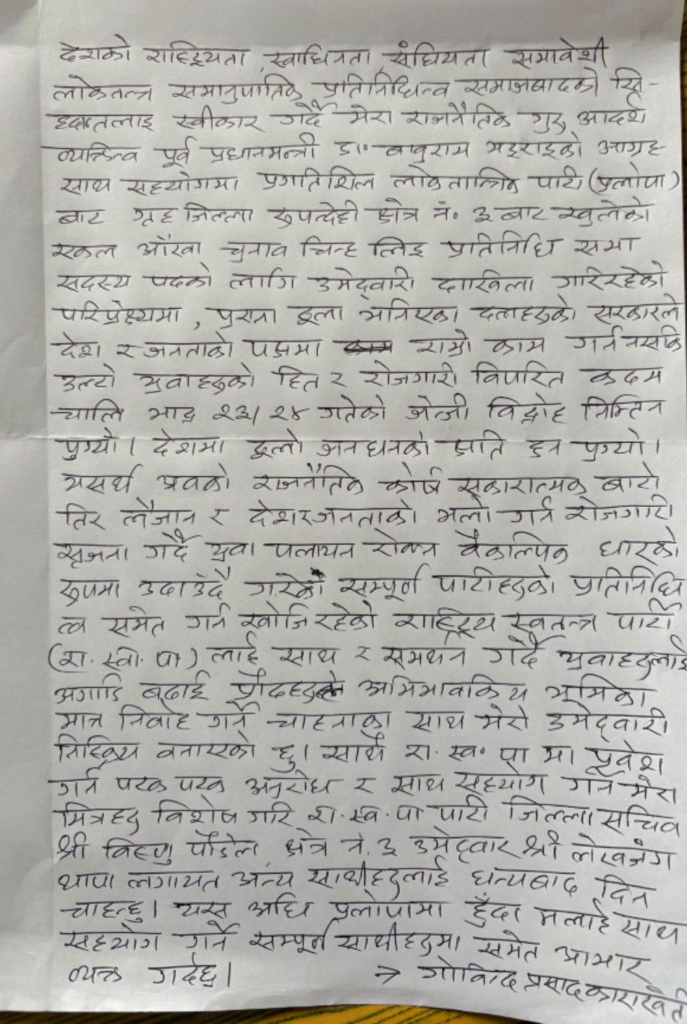 देशको राष्ट्रियता, स्वाधिनता संघियता समावेशी
लोकतन्त्र समानुपातिक प्रतिनिधित्व समाजवादको सि-
द्धान्तलाइ स्वीकार गर्दै मेरा राजनैतिक गुरु आदर्श
व्यक्तित्व पूर्व प्रधानमन्त्री डा॰ बाबुराम भट्टराइको आग्रह
साथ सहयोगमा प्रगतिशिल लोकतान्त्रिक पार्टी (प्रलोपा)
बाट गृह जिल्ला रुपन्देही क्षेत्र नं. ३ बाट खुलेको
एकल आँखा चुनाव चिन्ह लिइ प्रतिनिधि सभा
सदस्य पदको लागि उमेद्वारी दाखिला गरिरहेको
परिप्रेक्ष्यमा, पुराना ठूला भनिएका दलहरुको सरकारले
देश र जनताको पक्षमा राम्रो काम गर्न नसकि
उल्टो युवाहरुको हित र रोजगारी विपरित कदम
चालि भाद्र २३/२४ गतेको जेन्जी विद्रोह निम्तिन
पुग्यो। देशमा ठूलो जनधनको क्षति हुन पुग्यो।
यसर्थ अबको राजनैतिक कोर्ष सकारात्मक बाटो
तिर लैजान र देश र जनताको भलो गर्न रोजगारी
सृजना गर्दै युवा पलायन रोक्न वैकल्पिक धारको
रुपमा उदाउँदै गरेको सम्पूर्ण पार्टीहरुको प्रतिनिधि
त्व समेत गर्न खोजिरहेको राष्ट्रिय स्वतन्त्र पार्टी
(रा. स्वो. पा) लाई साथ र समर्थन गर्दै युवाहरुलाई
अगाडि बढाई प्रौढहरुले अभिभावकिय भूमिका
मात्र निर्वाह गर्ने चाहनाका साथ मेरो उमेद्वारी
निस्क्रिय बनाएको छु। साथै रा. स्व. पा मा प्रवेश
गर्न पटक पटक अनुरोध र साथ सहयोग गर्ने मेरा
मित्रहरु विशेष गरि रा. स्व. पा पार्टी जिल्ला सचिव
श्री विष्णु पौडेल क्षेत्र नं. ३ उमेद्वार श्री लेखजंग
थापा लगायत अन्य साथीहरुलाई धन्यबाद दिन
चाहन्छु। यस अघि प्रलोपामा हुँदा मलाई साथ
सहयोग गर्ने सम्पूर्ण साथीहरुमा समेत आभार
व्यक्त गर्दछु। → गोविन्द प्रसाद